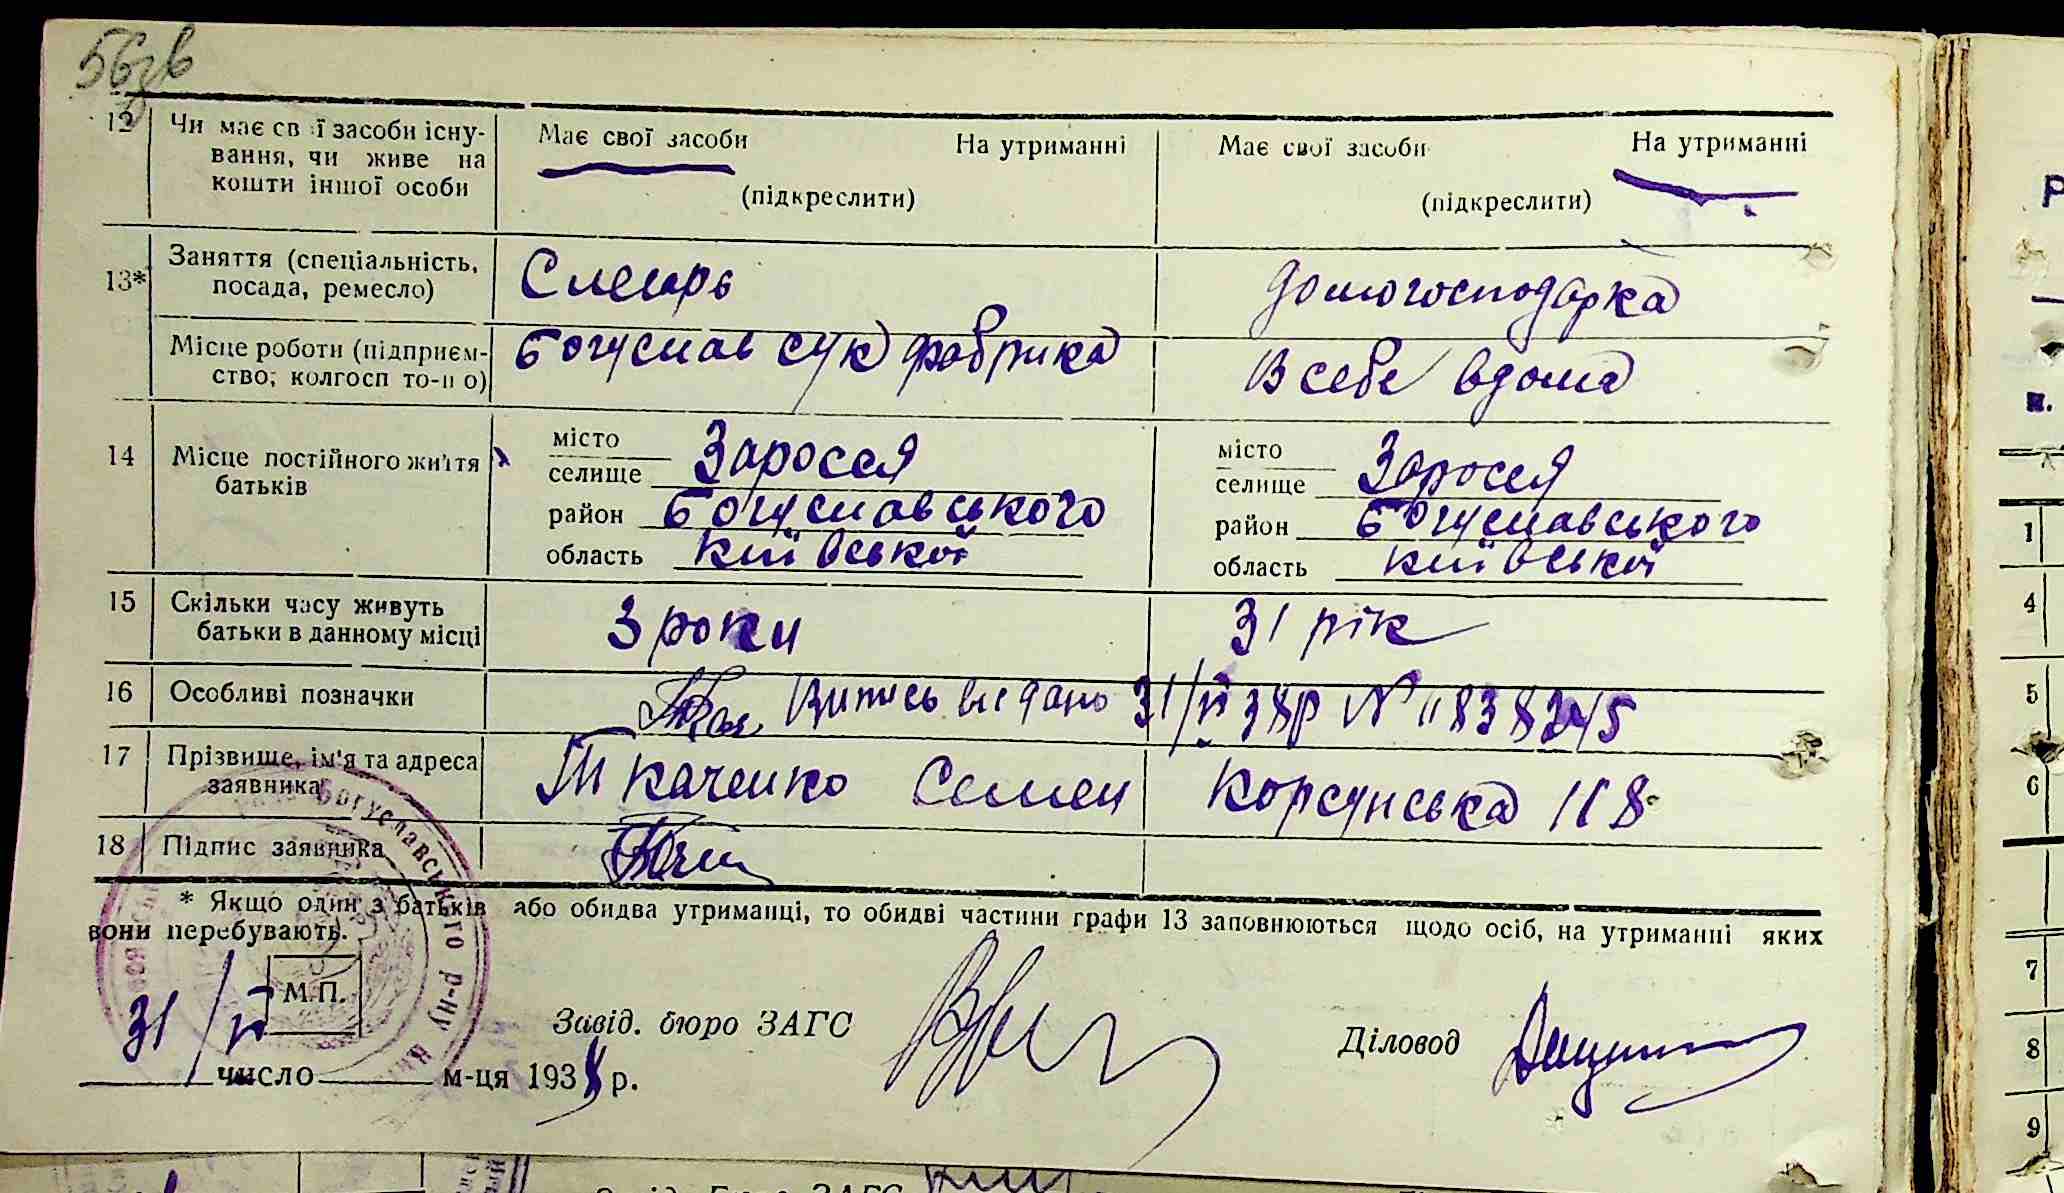 56зв
12 Чи має свої засоби існу-
вання, чи живе на
кошти іншої особи
Має свої засоби На утриманні
(підкреслити)
Має свої засоби На утриманні
(підкреслити)
13* Заняття (спеціальність,
посада, ремесло)
Слесарь
домогосподарка
Місце роботи (підприєм-
ство, колгосп то-що)
Богуслав сук фабрика
В себе вдома
14 Місце постійного життя
батьків
місто
селище Заросся
район Богуславського
область київської
місто
селище Заросся
район Богуславського
область київської
15 Скільки часу живуть
батьки в данному місці
3 роки
31 рік
16 Особливі позначки
Випись видано 31/V 38р №
17 Прізвище, ім'я та адреса
заявника
Ткаченко Семен Корсунська 118
18 Підпис заявника
* Якщо один з батьків або обидва утриманці, то обидві частини графи 13 заповнюються щодо осіб, на утриманні яких
вони перебувають.
Богуславського р-ну
М.П.
31/V
Завід. бюро ЗАГС
Діловод
число м-ця 1938 р.
Р
н.
1
4
5
6
7
8
9